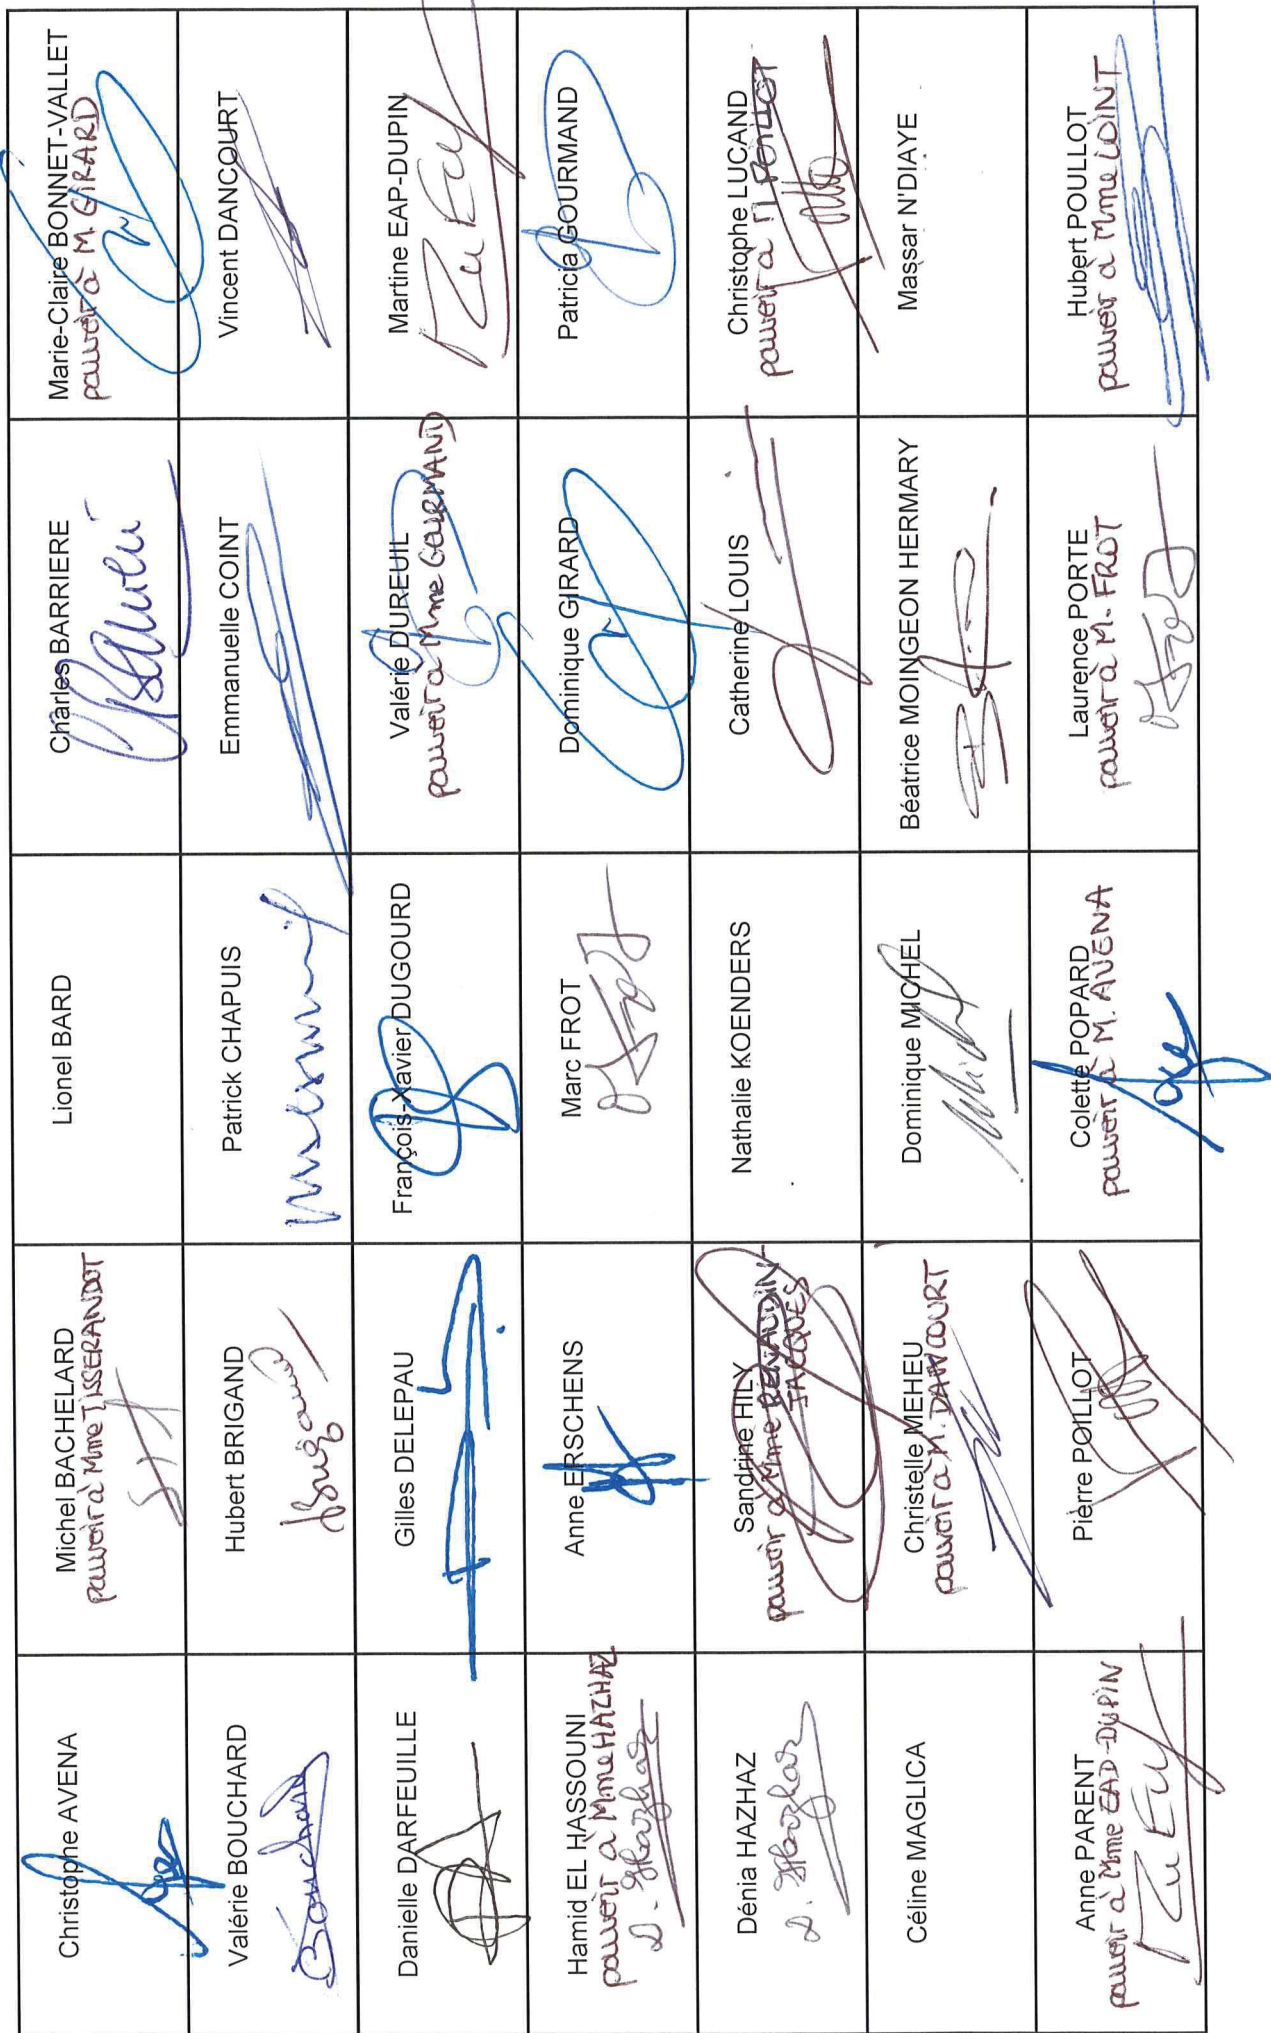 Christophe AVENA
Michel BACHELARD
pouvoir à Mme TISSERANDOT
Lionel BARD
Charles BARRIERE
Marie-Claire BONNET-VALLET
pouvoir à M. GIRARD
Valérie BOUCHARD
Bouchard
Hubert BRIGAND
Patrick CHAPUIS
Emmanuelle COINT
Vincent DANCOURT
Danielle DARFEUILLE
Gilles DELEPAU
François-Xavier DUGOURD
Valérie DUREUIL
pouvoir à Mme GOURMAND
Martine EAP-DUPIN
Hamid EL HASSOUNI
pouvoir à Mme HAZHAZ
D. Hazhaz
Anne ERSCHENS
Marc FROT
Dominique GIRARD
Patricia GOURMAND
Dénia HAZHAZ
D. Hazhaz
Sandrine HILY
pouvoir à Mme
JACQUES
Nathalie KOENDERS
Catherine LOUIS
Christophe LUCAND
pouvoir à M. POILLOT
Céline MAGLICA
Christelle MEHEU
pouvoir à M. DANCOURT
Dominique MICHEL
Béatrice MOINGEON HERMARY
Massar N'DIAYE
Anne PARENT
pouvoir à Mme EAP-DUPIN
Pierre POILLOT
Colette POPARD
pouvoir à M. AVENA
Laurence PORTE
pouvoir à M. FROT
Hubert POULLOT
pouvoir à Mme COINT